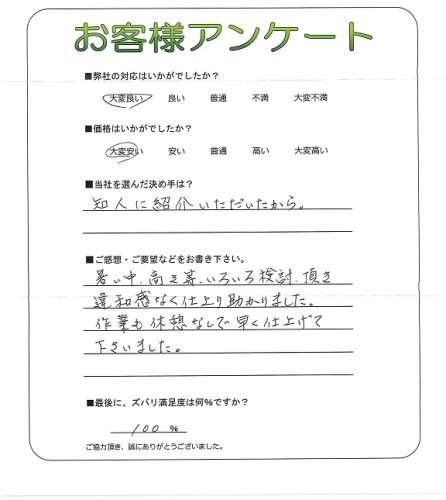 お客様アンケート
■弊社の対応はいかがでしたか？
大変良い 良い 普通 不満 大変不満
■価格はいかがでしたか？
大変安い 安い 普通 高い 大変高い
■当社を選んだ決め手は？
知人に紹介いただいたから。
■ご感想・ご要望などをお書き下さい。
暑い中、高さ等、いろいろ検討、頂き
違和感なく仕上り助かりました。
作業も休憩なしで早く仕上げて
下さいました。
■最後に、ズバリ満足度は何%ですか？
100 %
ご協力頂き、誠にありがとうございました。